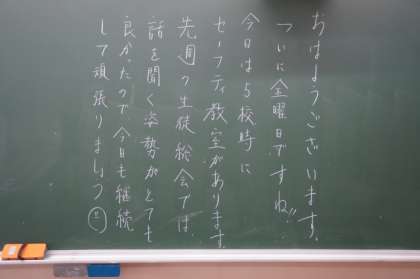 おはようございます。
ついに金曜日ですね!!
今日は5校時に
セーフティ教室があります。
先週の生徒総会では
話を聞く姿勢がとても
良かったので今日も継続
して頑張りましょう